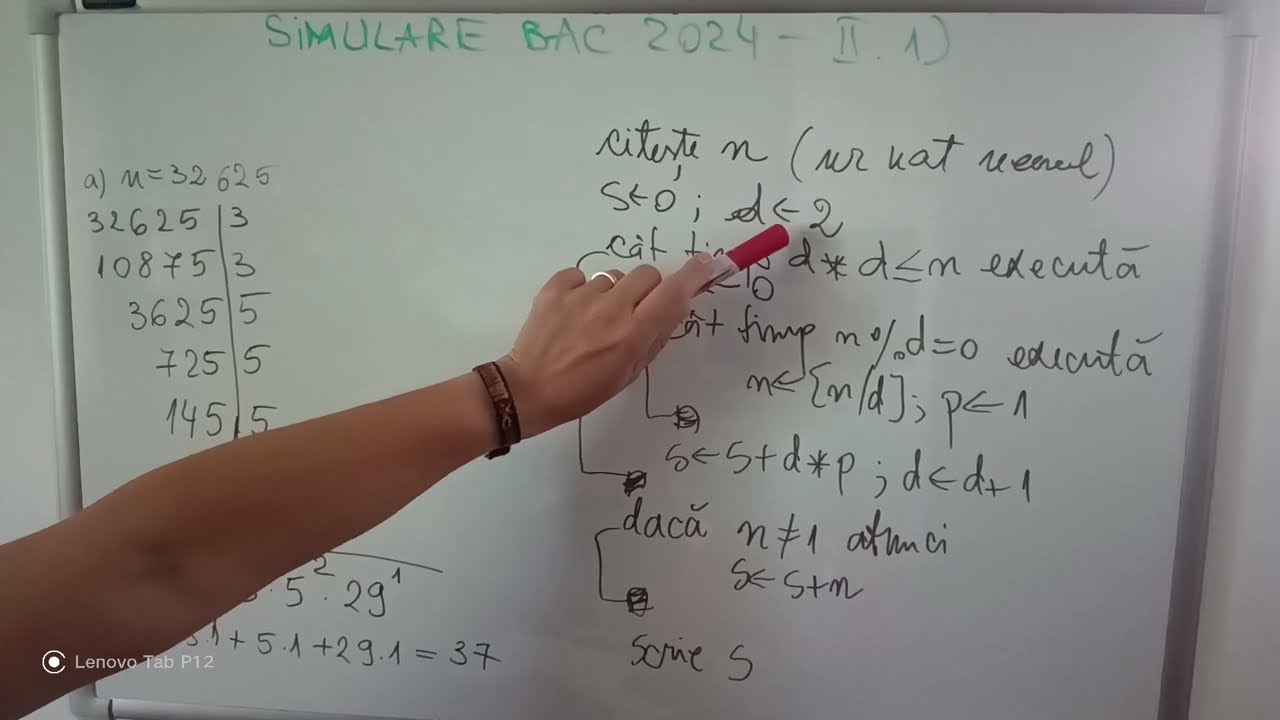 SIMULARE BAC 2024 - II. 1)
a) n=32625
32625 | 3
10875 | 3
3625 | 5
725 | 5
145 | 5
5² · 29¹
3·1 + 5·1 + 29·1 = 37
citește n (nr nat
s←0; d←2
cât d*d≤n execută
←0
cât timp n%d=0 execută
n←[n/d]; p←1
s←s+d*p; d←d+1
dacă n≠1 atunci
s←s+n
scrie s
Lenovo Tab P12